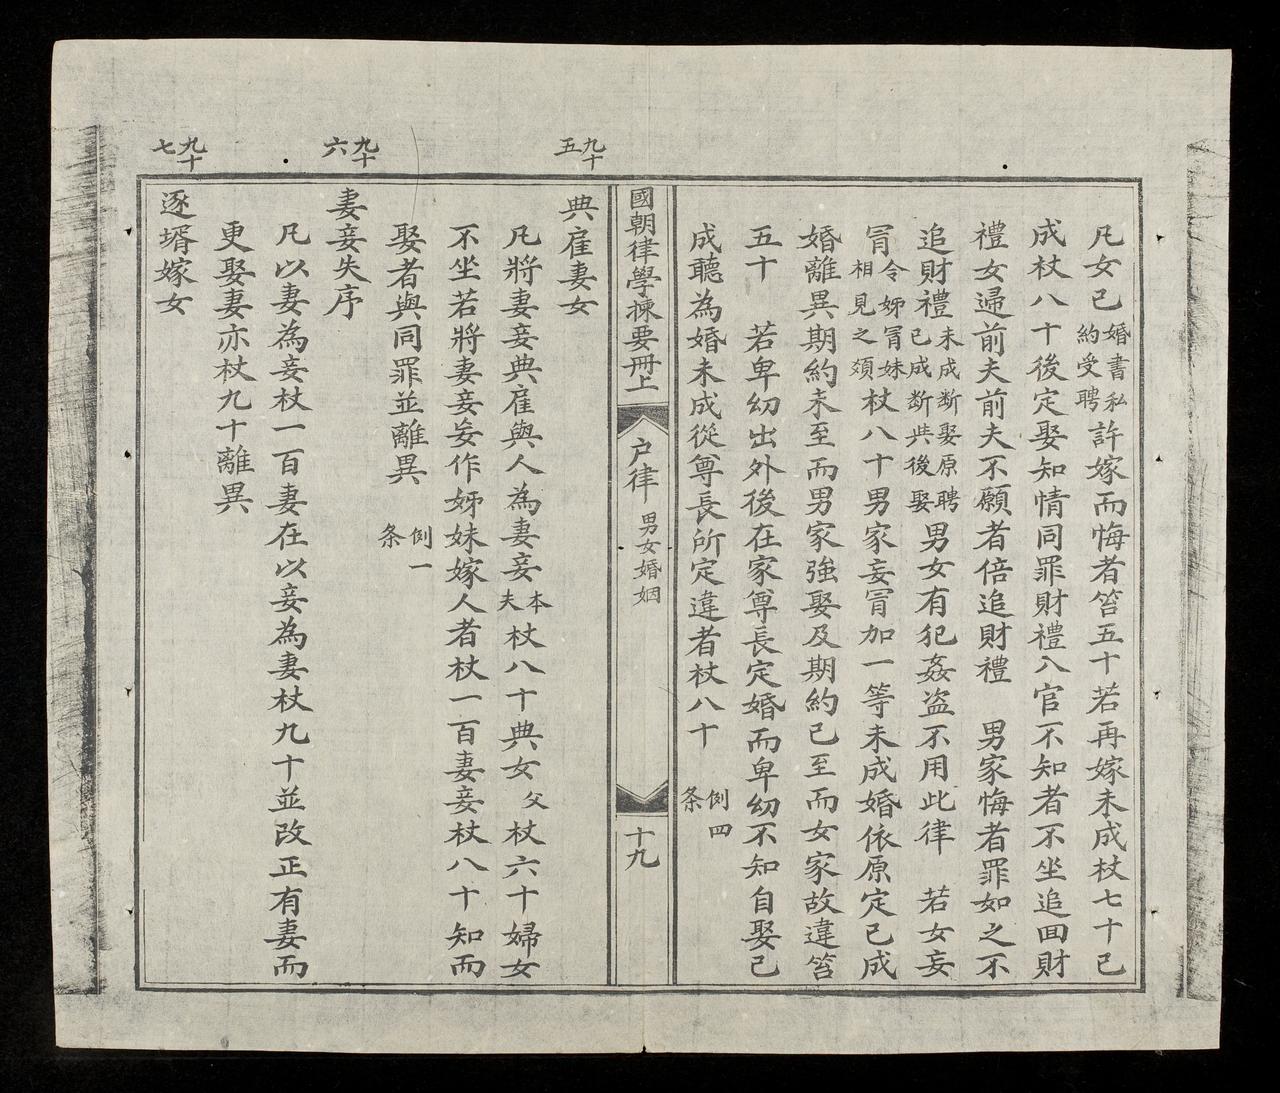 凡女已婚書私約受聘許嫁而悔者笞五十若再嫁未成杖七十已
成杖八十後定娶知情同罪財禮入官不知者不坐追回財
禮女歸前夫前夫不願者倍追財禮　男家悔者罪如之不
追財禮未成断娶原聘已成断此後娶男女有犯姦盗不用此律　若女妄
冐令姊冐妹相見之類杖八十男家妄冐加一等未成婚依原定已成
婚離異期約未至而男家強娶及期約已至而女家故違笞
五十　若卑幼出外後在家尊長定婚而卑幼不知自娶已
成聽為婚未成從尊長所定違者杖八十　例四条
國朝律學揀要冊上　户律　男女婚姻　十九
九十五
典雇妻女
凡將妻妾典雇與人為妻妾本夫杖八十典女父杖六十婦女
不坐若將妻妾妄作姊妹嫁人者杖一百妻妾杖八十知而
娶者與同罪並離異　例一条
九十六
妻妾失序
凡以妻為妾杖一百妻在以妾為妻杖九十並改正有妻而
更娶妻亦杖九十離異
九十七
逐壻嫁女